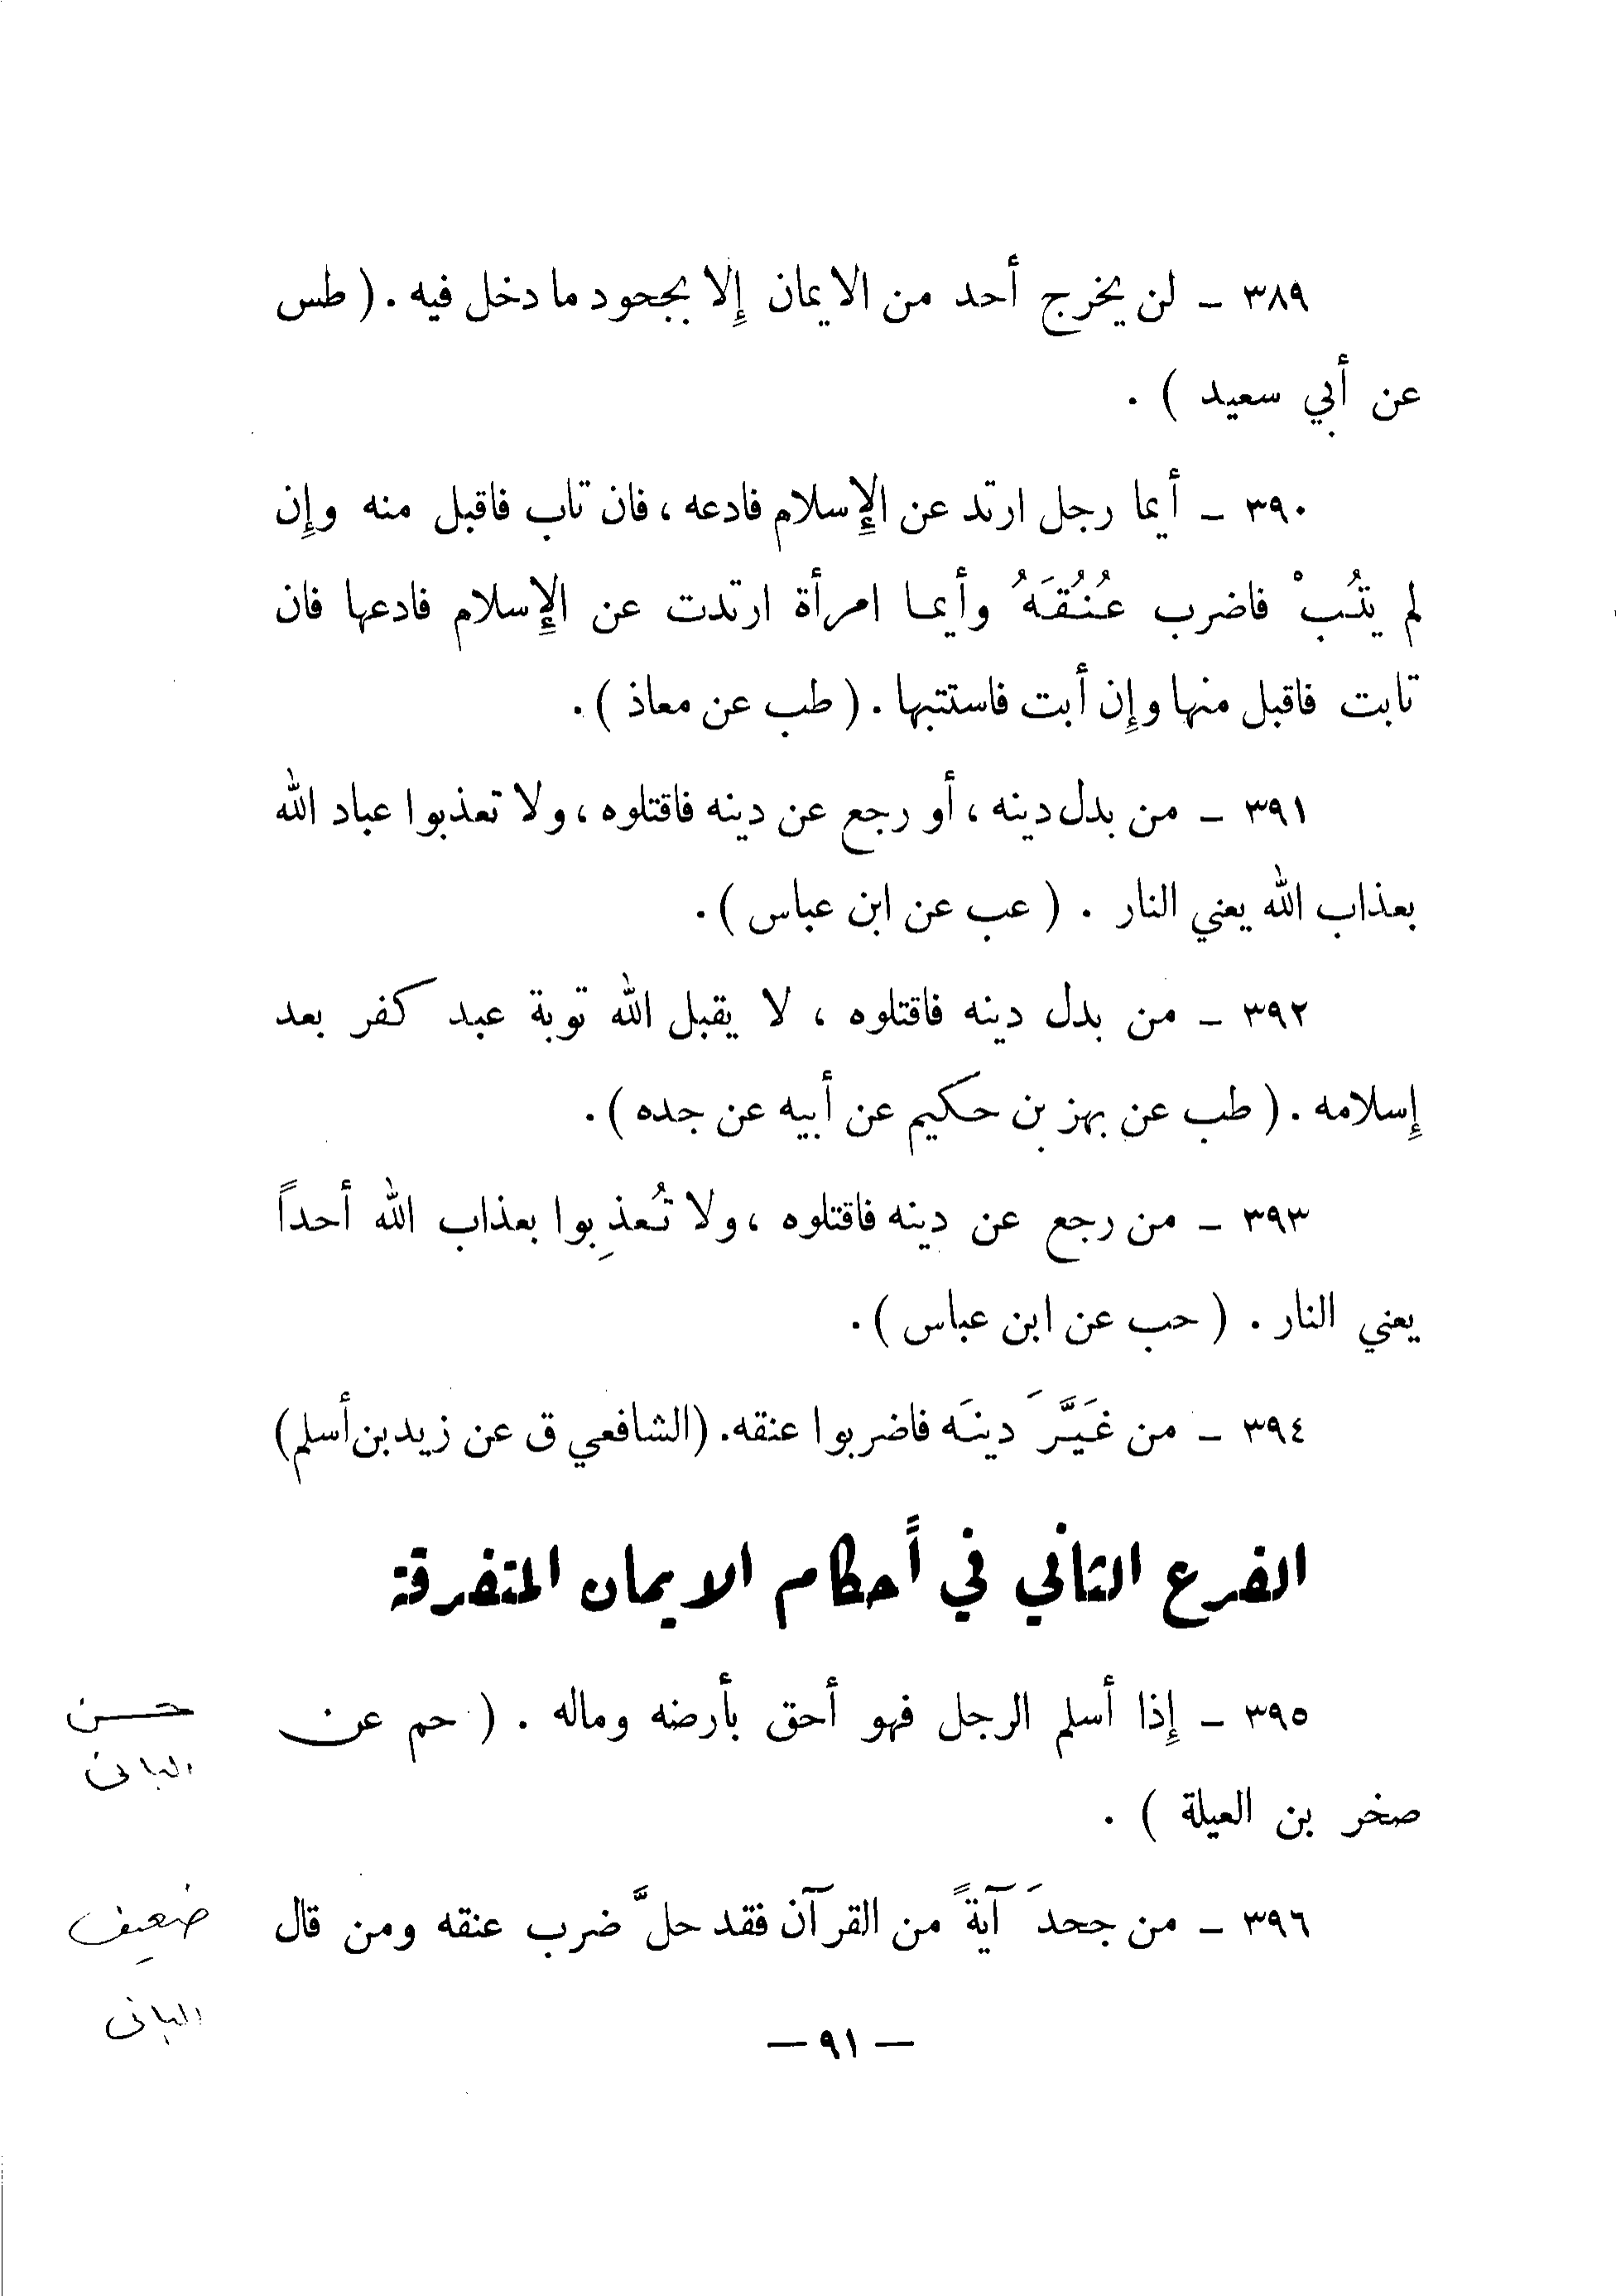 ٣٨٩ - لن يخرج أحد من الايمان إلا بجحود ما دخل فيه . ( طس
عن أبي سعيد ) .
٣٩٠ - أيما رجل ارتد عن الإسلام فادعه ، فان تاب فاقبل منه وإن
لم يتُبْ فاضرب عُنُقَهُ وأيما امرأة ارتدت عن الإسلام فادعها فان
تابت فاقبل منها وإن أبت فاستتبها . ( طب عن معاذ ) .
٣٩١ - من بدل دينه ، أو رجع عن دينه فاقتلوه ، ولا تعذبوا عباد الله
بعذاب الله يعني النار . ( عب عن ابن عباس ) .
٣٩٢ - من بدل دينه فاقتلوه ، لا يقبل الله توبة عبد كفر بعد
إسلامه . ( طب عن بهز بن حكيم عن أبيه عن جده ) .
٣٩٣ - من رجع عن دينه فاقتلوه ، ولا تُعذِبوا بعذاب الله أحداً
يعني النار . ( حب عن ابن عباس ) .
٣٩٤ - من غَيَّرَ دينَه فاضربوا عنقه. (الشافعي ق عن زيد بن أسلم)
الفرع الثاني في أحكام الايمان المتفرقة
٣٩٥ - إذا أسلم الرجل فهو أحق بأرضه وماله . ( حم عن
حسن
البانى
صخر بن العيلة ) .
٣٩٦ - من جحدَ آيةً من القرآن فقد حلَّ ضرب عنقه ومن قال
ضعيف
البانى
— ٩١ —